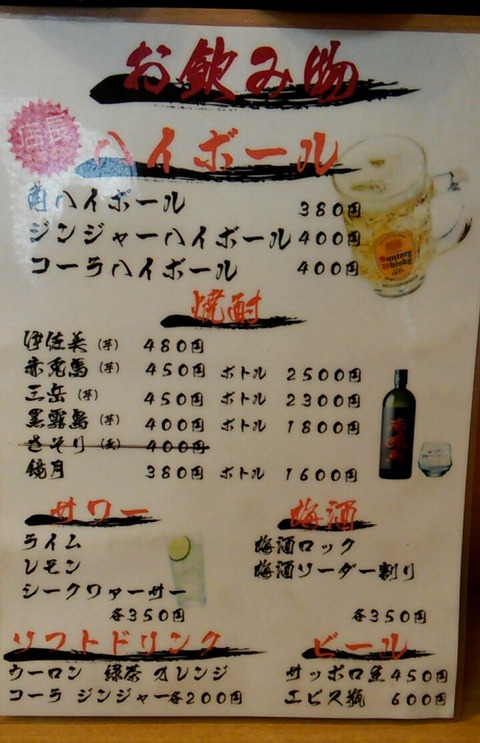 お飲み物
店長
ハイボール
角ハイボール 380円
ジンジャーハイボール 400円
コーラハイボール 400円
Suntory
Whisky
焼酎
伊佐美(芋) 480円
赤兎馬(芋) 450円 ボトル 2500円
三岳(芋) 450円 ボトル 2300円
黒霧島(芋) 400円 ボトル 1800円
さそり(麦) 400円
鏡月 380円 ボトル 1600円
サワー
ライム
レモン
シークヮァーサー
各350円
梅酒
梅酒ロック
梅酒ソーダー割り
各350円
ソフトドリンク
ウーロン 緑茶 オレンジ
コーラ ジンジャー各200円
ビール
サッポロ生450円
エビス瓶 600円